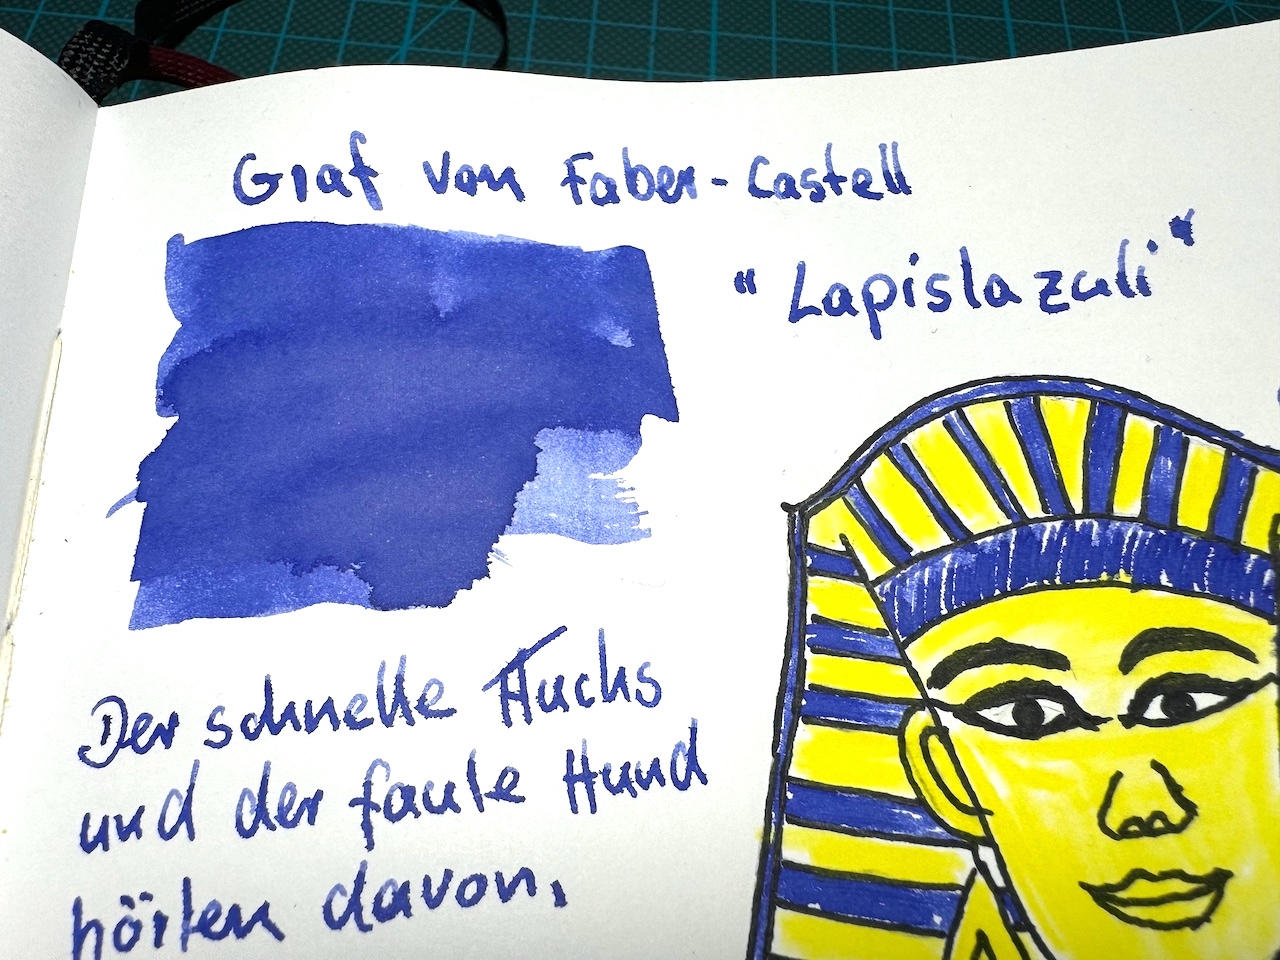 Graf von Faber-Castell
"Lapislazuli"
Der schnelle Fuchs
und der faule Hund
hörten davon.